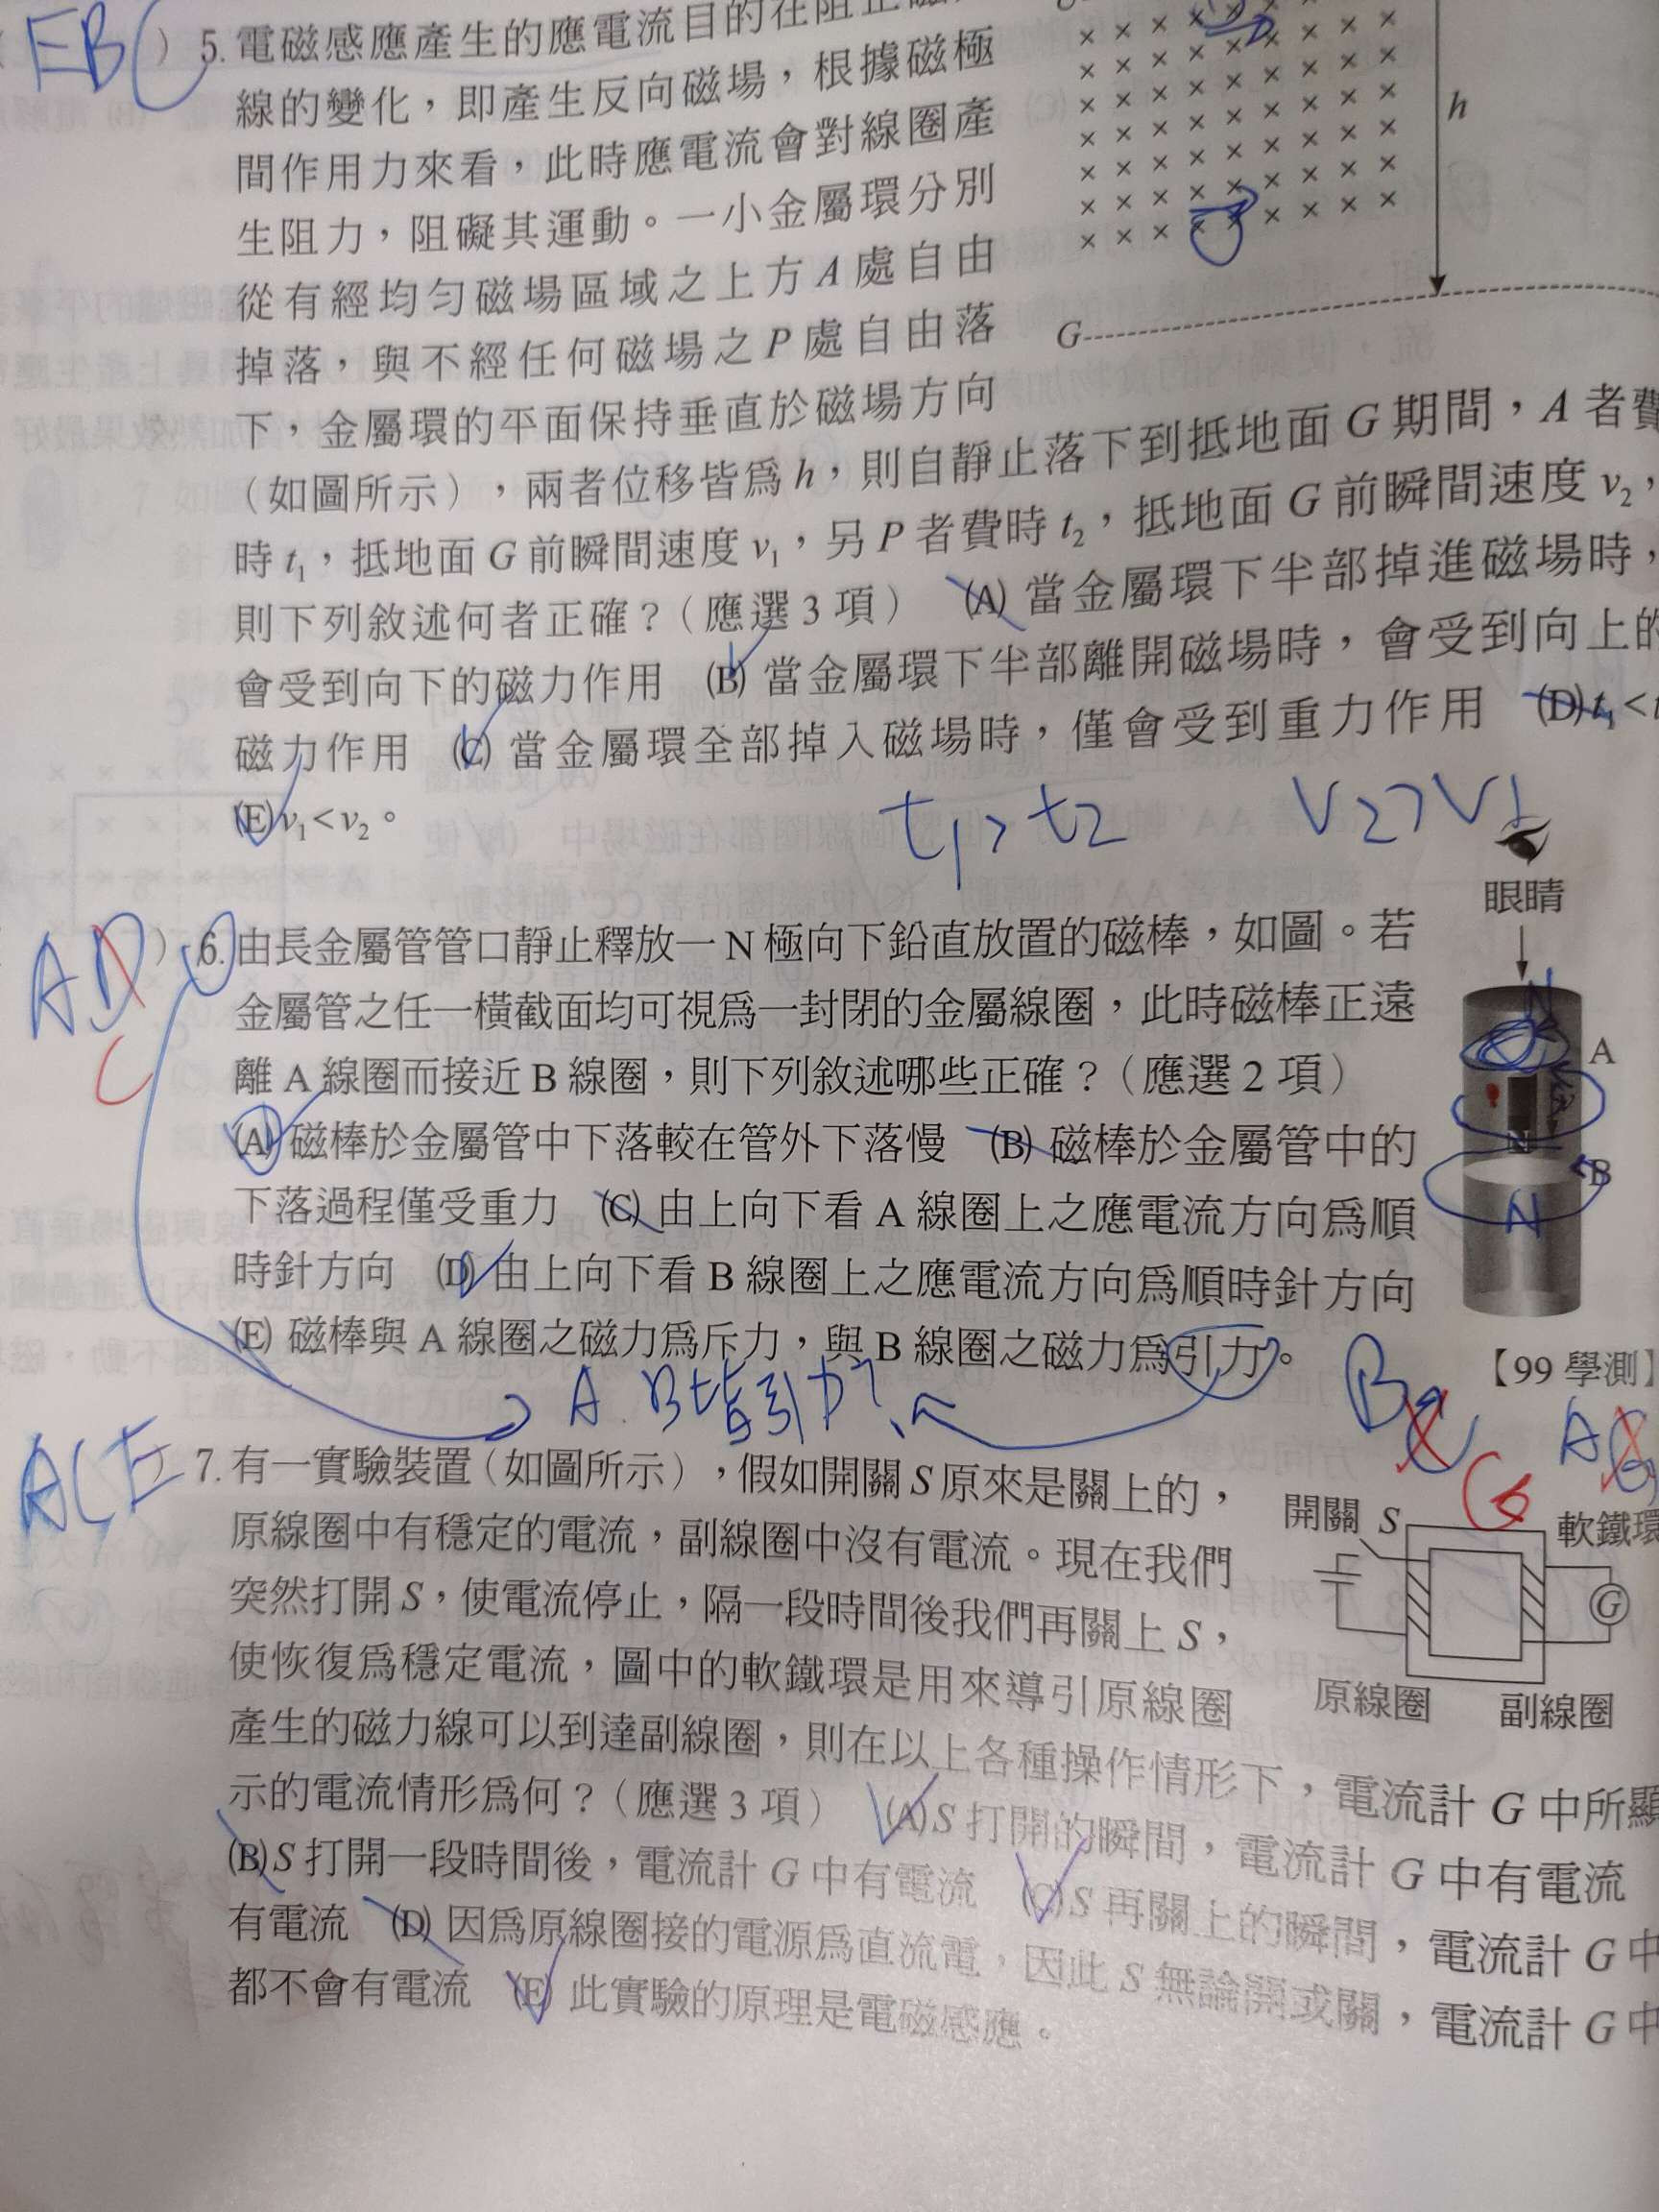 EBC
) 5. 電磁感應產生的應電流目的在阻止磁
線的變化，即產生反向磁場，根據磁極
間作用力來看，此時應電流會對線圈產
生阻力，阻礙其運動。一小金屬環分別
從有經均勻磁場區域之上方A處自由
掉落，與不經任何磁場之P處自由落
下，金屬環的平面保持垂直於磁場方向
h
G
（如圖所示），兩者位移皆為h，則自靜止落下到抵地面G期間，A者費
時t₁，抵地面G前瞬間速度v₁，另P者費時t₂，抵地面G前瞬間速度v₂，
則下列敘述何者正確？（應選3項） (A) 當金屬環下半部掉進磁場時，
會受到向下的磁力作用 (B) 當金屬環下半部離開磁場時，會受到向上的
磁力作用 (C) 當金屬環全部掉入磁場時，僅會受到重力作用 (D) t₁<t
(E) v₁<v₂。
t1>t2 V2>V1
AD
C
) 6. 由長金屬管管口靜止釋放一N極向下鉛直放置的磁棒，如圖。若
金屬管之任一橫截面均可視為一封閉的金屬線圈，此時磁棒正遠
離A線圈而接近B線圈，則下列敘述哪些正確？（應選2項）
(A) 磁棒於金屬管中下落較在管外下落慢 (B) 磁棒於金屬管中的
下落過程僅受重力 (C) 由上向下看A線圈上之應電流方向為順
時針方向 (D) 由上向下看B線圈上之應電流方向為順時針方向
(E) 磁棒與A線圈之磁力為斥力，與B線圈之磁力為引力。
眼睛
N
A
N
B
N
【99學測】
A.B皆引力?
ACE
7. 有一實驗裝置（如圖所示），假如開關S原來是關上的，
原線圈中有穩定的電流，副線圈中沒有電流。現在我們
突然打開S，使電流停止，隔一段時間後我們再關上S，
使恢復為穩定電流，圖中的軟鐵環是用來導引原線圈
產生的磁力線可以到達副線圈，則在以上各種操作情形下，電流計G中所顯
示的電流情形為何？（應選3項） (A)S打開的瞬間，電流計G中有電流
(B)S打開一段時間後，電流計G中有電流 (C)S再關上的瞬間，電流計G中
有電流 (D) 因為原線圈接的電源為直流電，因此S無論開或關，電流計G中
都不會有電流 (E) 此實驗的原理是電磁感應。
開關 S
軟鐵環
G
原線圈
副線圈